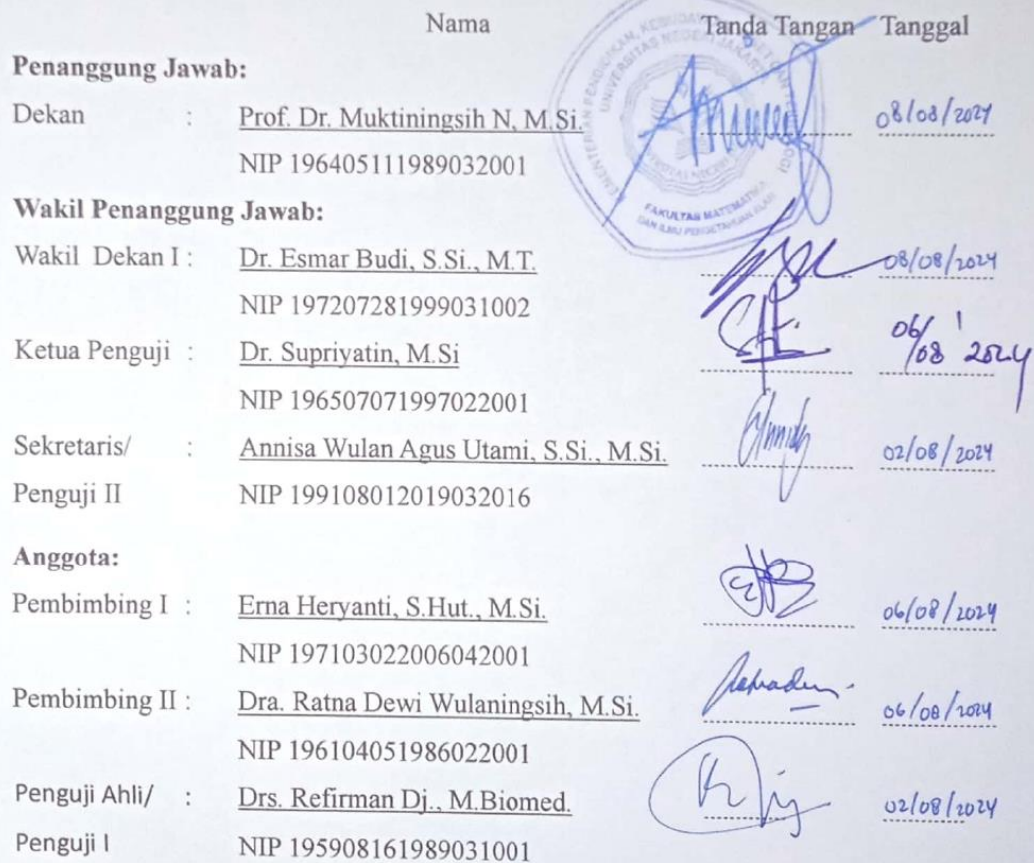 Nama Tanda Tangan Tanggal
Penanggung Jawab:
Dekan : Prof. Dr. Muktiningsih N, M.Si. 08/08/2024
NIP 196405111989032001
Wakil Penanggung Jawab:
Wakil Dekan I : Dr. Esmar Budi, S.Si., M.T. 08/08/2024
NIP 197207281999031002
Ketua Penguji : Dr. Supriyatin, M.Si 06/08 2024
NIP 196507071997022001
Sekretaris/ : Annisa Wulan Agus Utami, S.Si., M.Si. 02/08/2024
Penguji II NIP 199108012019032016
Anggota:
Pembimbing I : Erna Heryanti, S.Hut., M.Si. 06/08/2024
NIP 197103022006042001
Pembimbing II : Dra. Ratna Dewi Wulaningsih, M.Si. 06/08/2024
NIP 196104051986022001
Penguji Ahli/ : Drs. Refirman Dj., M.Biomed. 02/08/2024
Penguji I NIP 195908161989031001
UNIVERSITAS NEGERI JAKARTA
FAKULTAS MATEMATIKA
DAN ILMU PENGETAHUAN ALAM